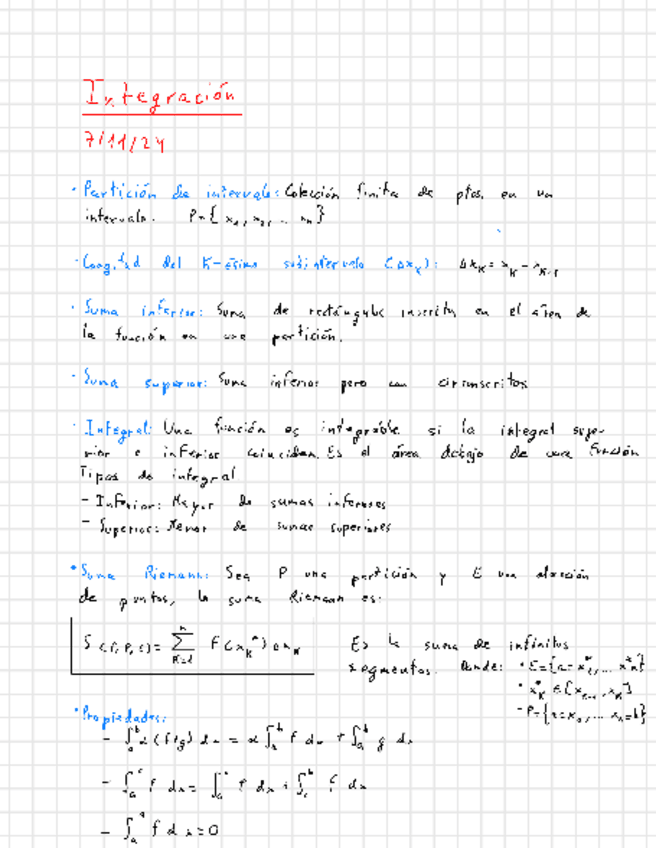 Integración
7/11/24
· Partición de intervalo: Colección finita de ptos. en un
intervalo. P={x₁, x₂, ... xₙ}
· Longitud del K-ésimo subintervalo (Δxₖ): Δxₖ = xₖ - xₖ₋₁
· Suma inferior: Suma de rectángulos inscritos en el área de
la función en una partición.
· Suma superior: Suma inferior pero con circunscritos
· Integral: Una función es integrable si la integral supe-
rior e inferior coinciden. Es el área debajo de una función
Tipos de integral
- Inferior: Mayor de sumas inferiores
- Superior: Menor de sumas superiores
· Suma Riemann: Sea P una partición y E una elección
de puntos, la suma Riemann es:
S(f,P,E) = Σ F(xₖ*) Δxₖ
Es la suma de infinitos
segmentos. Donde: · E={a=x₁*, ... xₙ*}
· xₖ* ∈ [xₖ₋₁, xₖ]
- P={a=x₀, ... xₙ=b}
· Propiedades:
- ∫ₐᵇ α(f+g) dx = α∫ₐᵇ f dx + ∫ₐᵇ g dx
- ∫ₐᶜ f dx = ∫ₐ f dx + ∫ᵇ f dx
- ∫ₐᵃ f dx = 0